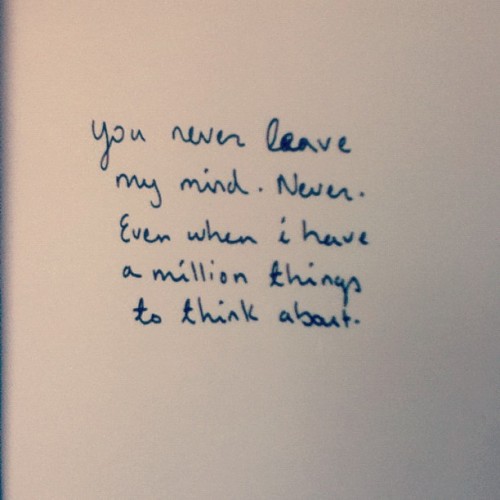 you never leave
my mind. Never.
Even when i have
a million things
to think about.